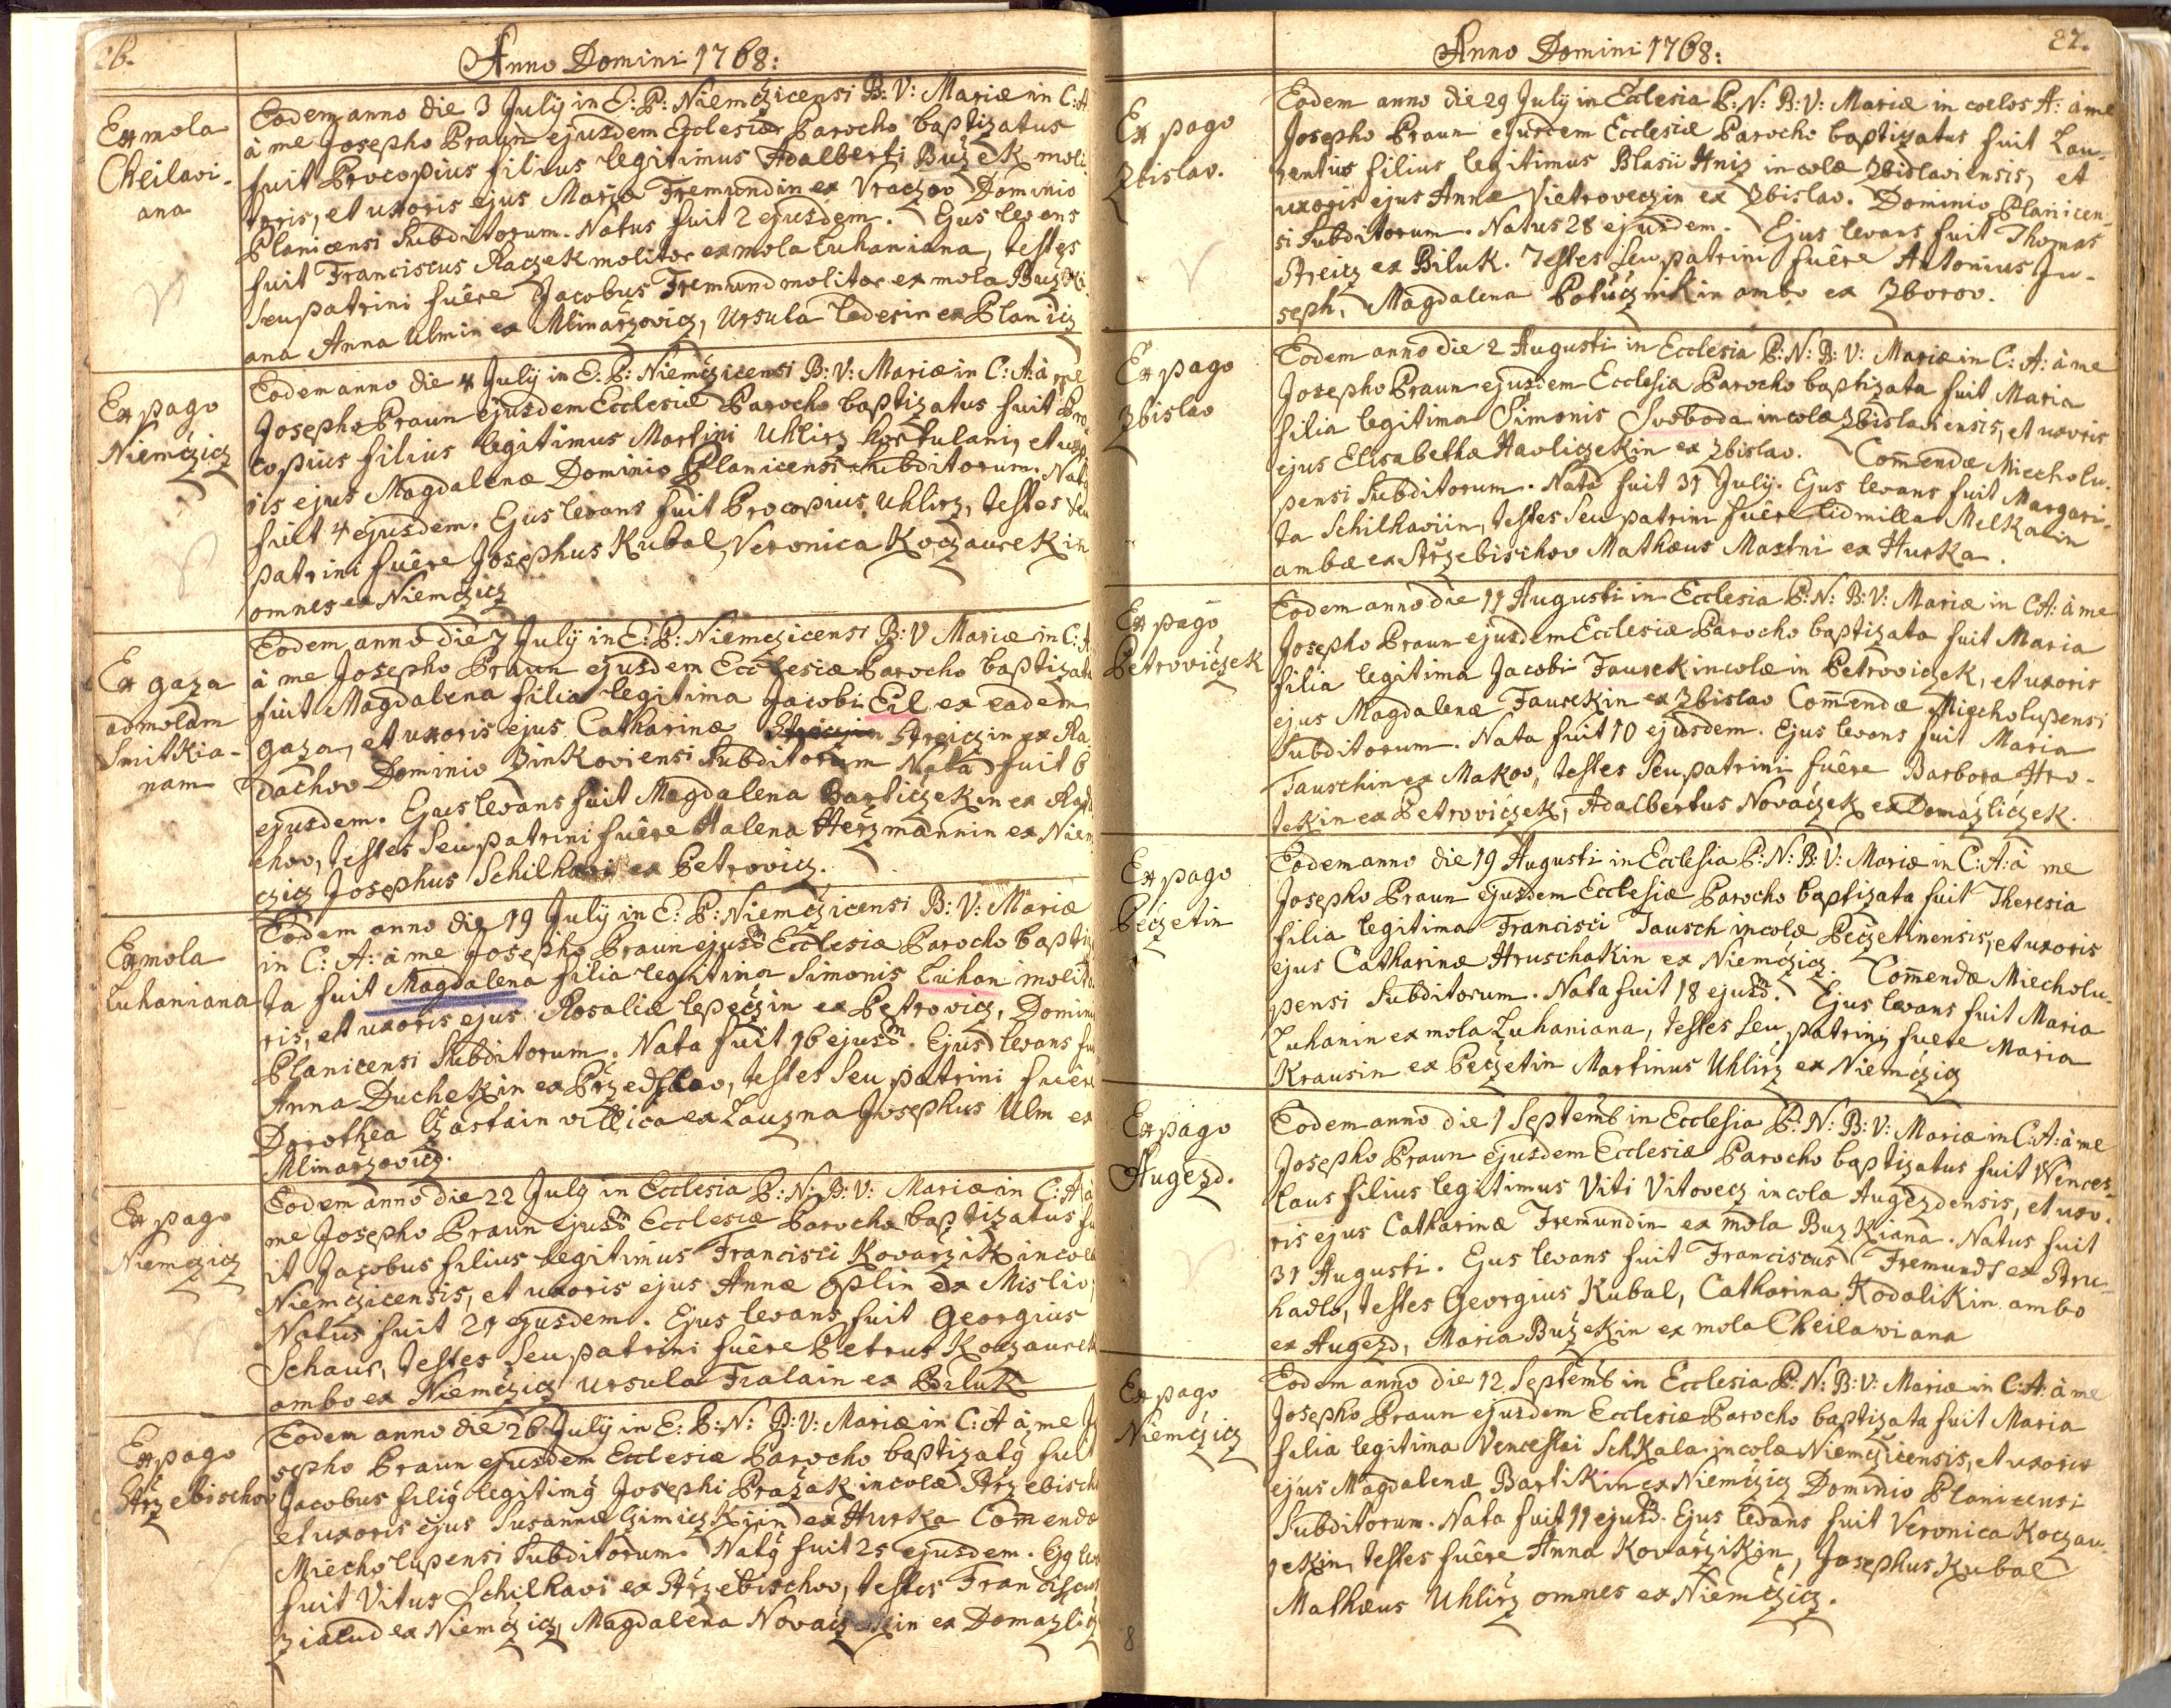 26.
Anno Domini 1768:
Ex mola
Cheilavi-
ana
Eodem anno die 3 July in E: P: Niemczicensi B: V: Mariæ in C: A
à me Josepho Praun ejusdem Ecclesiæ Parocho baptizatus
fuit Procopius filius legitimus Adalberti Bužek moli
toris, et uxoris ejus Maria Fremundin ex Vraczov Dominio
Planicensi Subditorum. Natus fuit 2 ejusdem. Ejus levans
fuit Franciscus Raczek molitor ex mola Luhaniana, testes
seu patrini fuêre Jacobus Fremund molitor ex mola Buzki
ana Anna Ulmin ex Mlinarzovicz, Ursula Ledesin ex Planicz
Ex pago
Niemczicz
Eodem anno die 4 July in E: P: Niemczicensi B: V: Mariæ in C: A: à me
Josepho Praun ejusdem Ecclesiæ Parocho baptizatus fuit Pro
copius filius legitimus Martini Uhlirz hortulani, et uxo
ris ejus Magdalenæ Dominio Planicensi Subditorum. Natus
fuit 4 ejusdem. Ejus levans fuit Procopius Uhlirz, testes seu
patrini fuêre Josephus Kubal, Veronica Koczaurekin
omnes ex Niemczicz
Ex gaza
ad molam
Smitkia-
nam
Eodem anno die 7 July in E: P: Niemczicensi B: V Mariæ in C: A
à me Josepho Praun ejusdem Ecclesiæ Parocho baptizata
fuit Magdalena filia legitima Jacobi Eil ex eadem
gaza, et uxoris ejus Catharinæ Streiczin ex Ra-
dachov Dominio Binkoviensi Subditorum Nata fuit 6
ejusdem. Ejus levans fuit Magdalena Barticzekin ex Rada
chov, testes seu patrini fuêre Halena Herzmannin ex Niem
czicz Josephus Schilhavi ex Petrovicz.
Ex mola
Luhaniana
Eodem anno die 19 July in E: P: Niemczicensi B: V: Mariæ
in C: A: à me Josepho Praun ejusdm Ecclesiæ Parocho baptiza
ta fuit Magdalena filia legitima Simonis Luhan molito
ris, et uxoris ejus Rosaliæ Lepeczin ex Petrovicz, Dominio
Planicensi Subditorum. Nata fuit 16 ejusdm. Ejusd levans fuit
Anna Duchekin ex Przedslav, testes seu patrini fuêre
Dorothea Czastain villica ex Lauzna Josephus Ulm ex
Mlinarzovicz.
Ex pago
Niemczicz
Eodem anno die 22 July in Ecclesia P: N: B: V: Mariæ in C: A: à
me Josepho Praun ejusdm Ecclesiæ Parocho baptizatus fu
it Jacobus filius legitimus Francisci Kovarzik incolæ
Niemczicensis, et uxoris ejus Annæ Oplin ex Misliv,
Natus fuit 21 ejusdem. Ejus levans fuit Georgius
Schaus, testes seu patrini fuêre Petrus Koczaurek
ambo ex Niemczicz Ursula Fialain ex Biluk
Ex pago
Strzebischov
Eodem anno die 26 July in E: P: N: B: V: Mariæ in C: A à me Jo
sepho Praun ejusdem Ecclesiæ Parocho baptizatq fuit
Jacobus filiq legitimq Josephi Pražak incolæ Strzebisch
et uxoris ejus Susannæ Czimiczkijin ex Hurka Comendæ
Miecholupensi Subditorum. Natq fuit 25 ejusdem. Ejq lev
fuit Vitus Schilhavi ex Strzebischov, testes Franciscus
Zialud ex Niemczicz, Magdalena Novaczekin ex Domazlicz
87.
Anno Domini 1768:
Ex pago
Zbislav.
Eodem anno die 29 July in Ecclesia P: N: B: V: Mariæ in coelos A: à me
Josepho Praun ejusdem Ecclesiæ Parocho baptizatus fuit Lau-
rentius filius legitimus Blasii Hniz incolæ Zbislaviensis, et
uxoris ejus Annæ Vietroveczin ex Zbislav. Dominio Planicen-
si Subditorum. Natus 28 ejusdem. Ejus levans fuit Thomas
Streicz ex Biluk. Testes seu patrini fuêre Antonius Ju-
seph, Magdalena Potúcznikin ambo ex Zborov.
Ex pago
Zbislav
Eodem anno die 2 Augusti in Ecclesia P: N: B: V: Mariæ in C: A: à me
Josepho Praun ejusdem Ecclesia Parocho baptizata fuit Maria
filia legitima Simonis Svoboda incolæ Zbislaviensis, et uxoris
ejus Elisabetha Havliczekin ex Zbislav. Comendæ Miecholu-
pensi Subditorum. Nata fuit 31 July. Ejus levans fuit Margari-
ta Schilhaviin, testes seu patrini fuêre Lidmilla Melkain
ambæ ex Strzebischov Mathæus Mastni ex Hurka.
Ex pago
Petroviczek
Eodem anno die 11 Augusti in Ecclesia P: N: B: V: Mariæ in C A: à me
Josepho Praun ejusdem Ecclesiæ Parocho baptizata fuit Maria
filia legitima Jacobi Faurek incolæ in Petroviczek, et uxoris
ejus Magdalenæ Faurekin ex Zbislav Comendæ Miecholupensi
Subditorum. Nata fuit 10 ejusdem. Ejus levans fuit Maria
Tauschin ex Makov, testes seu patrini fuêre Barbora Hro-
tekin ex Petroviczek, Adalbertus Novaczek ex Domazliczek.
Ex pago
Peczetin
Eodem anno die 19 Augusti in Ecclesia P: N: B: V: Mariæ in C: A: à me
Josepho Praun ejusdem Ecclesiæ Parocho baptizata fuit Theresia
filia legitima Francisci Tausch incolæ Peczetinensis, et uxoris
ejus Catharinæ Hruschakin ex Niemczicz. Comendæ Miecholu-
pensi Subditorum. Nata fuit 18 ejusdm. Ejus levans fuit Maria
Luhanin ex mola Luhaniana, testes seu patrini fuere Maria
Krausin ex Peczetin Martinus Uhlirz ex Niemczicz
Ex pago
Augezd.
Eodem anno die 1 Septemb in Ecclesia P: N: B: V: Mariæ in C: A: à me
Josepho Praun ejusdem Ecclesiæ Parocho baptizatus fuit Wences-
laus filius legitimus Viti Vitovecz incolæ Augezdensis, et uxo-
ris ejus Catharinæ Fremundin ex mola Buzkiana. Natus fuit
31 Augusti. Ejus levans fuit Franciscus Fremundt ex Stru-
hadlo, testes Georgius Kubal, Catharina Kodalikin ambo
ex Augezd, Maria Bužekin ex mola Cheilawiana
Ex pago
Niemczicz
Eodem anno die 12 Septemb in Ecclesia P: N: B: V: Mariæ in C: A: à me
Josepho Praun ejusdem Ecclesiæ Parocho baptizata fuit Maria
filia legitima Venceslai Schkala incolæ Niemczicensis, et uxoris
ejus Magdalenæ Bartikin ex Niemczicz Dominio Planicensi
Subditorum. Nata fuit 11 ejusd. Ejus levans fuit Veronica Koczau-
rekin, testes fuêre Anna Kovarzikin, Josephus Kubal
Mathæus Uhlirz omnes ex Niemczicz.
8